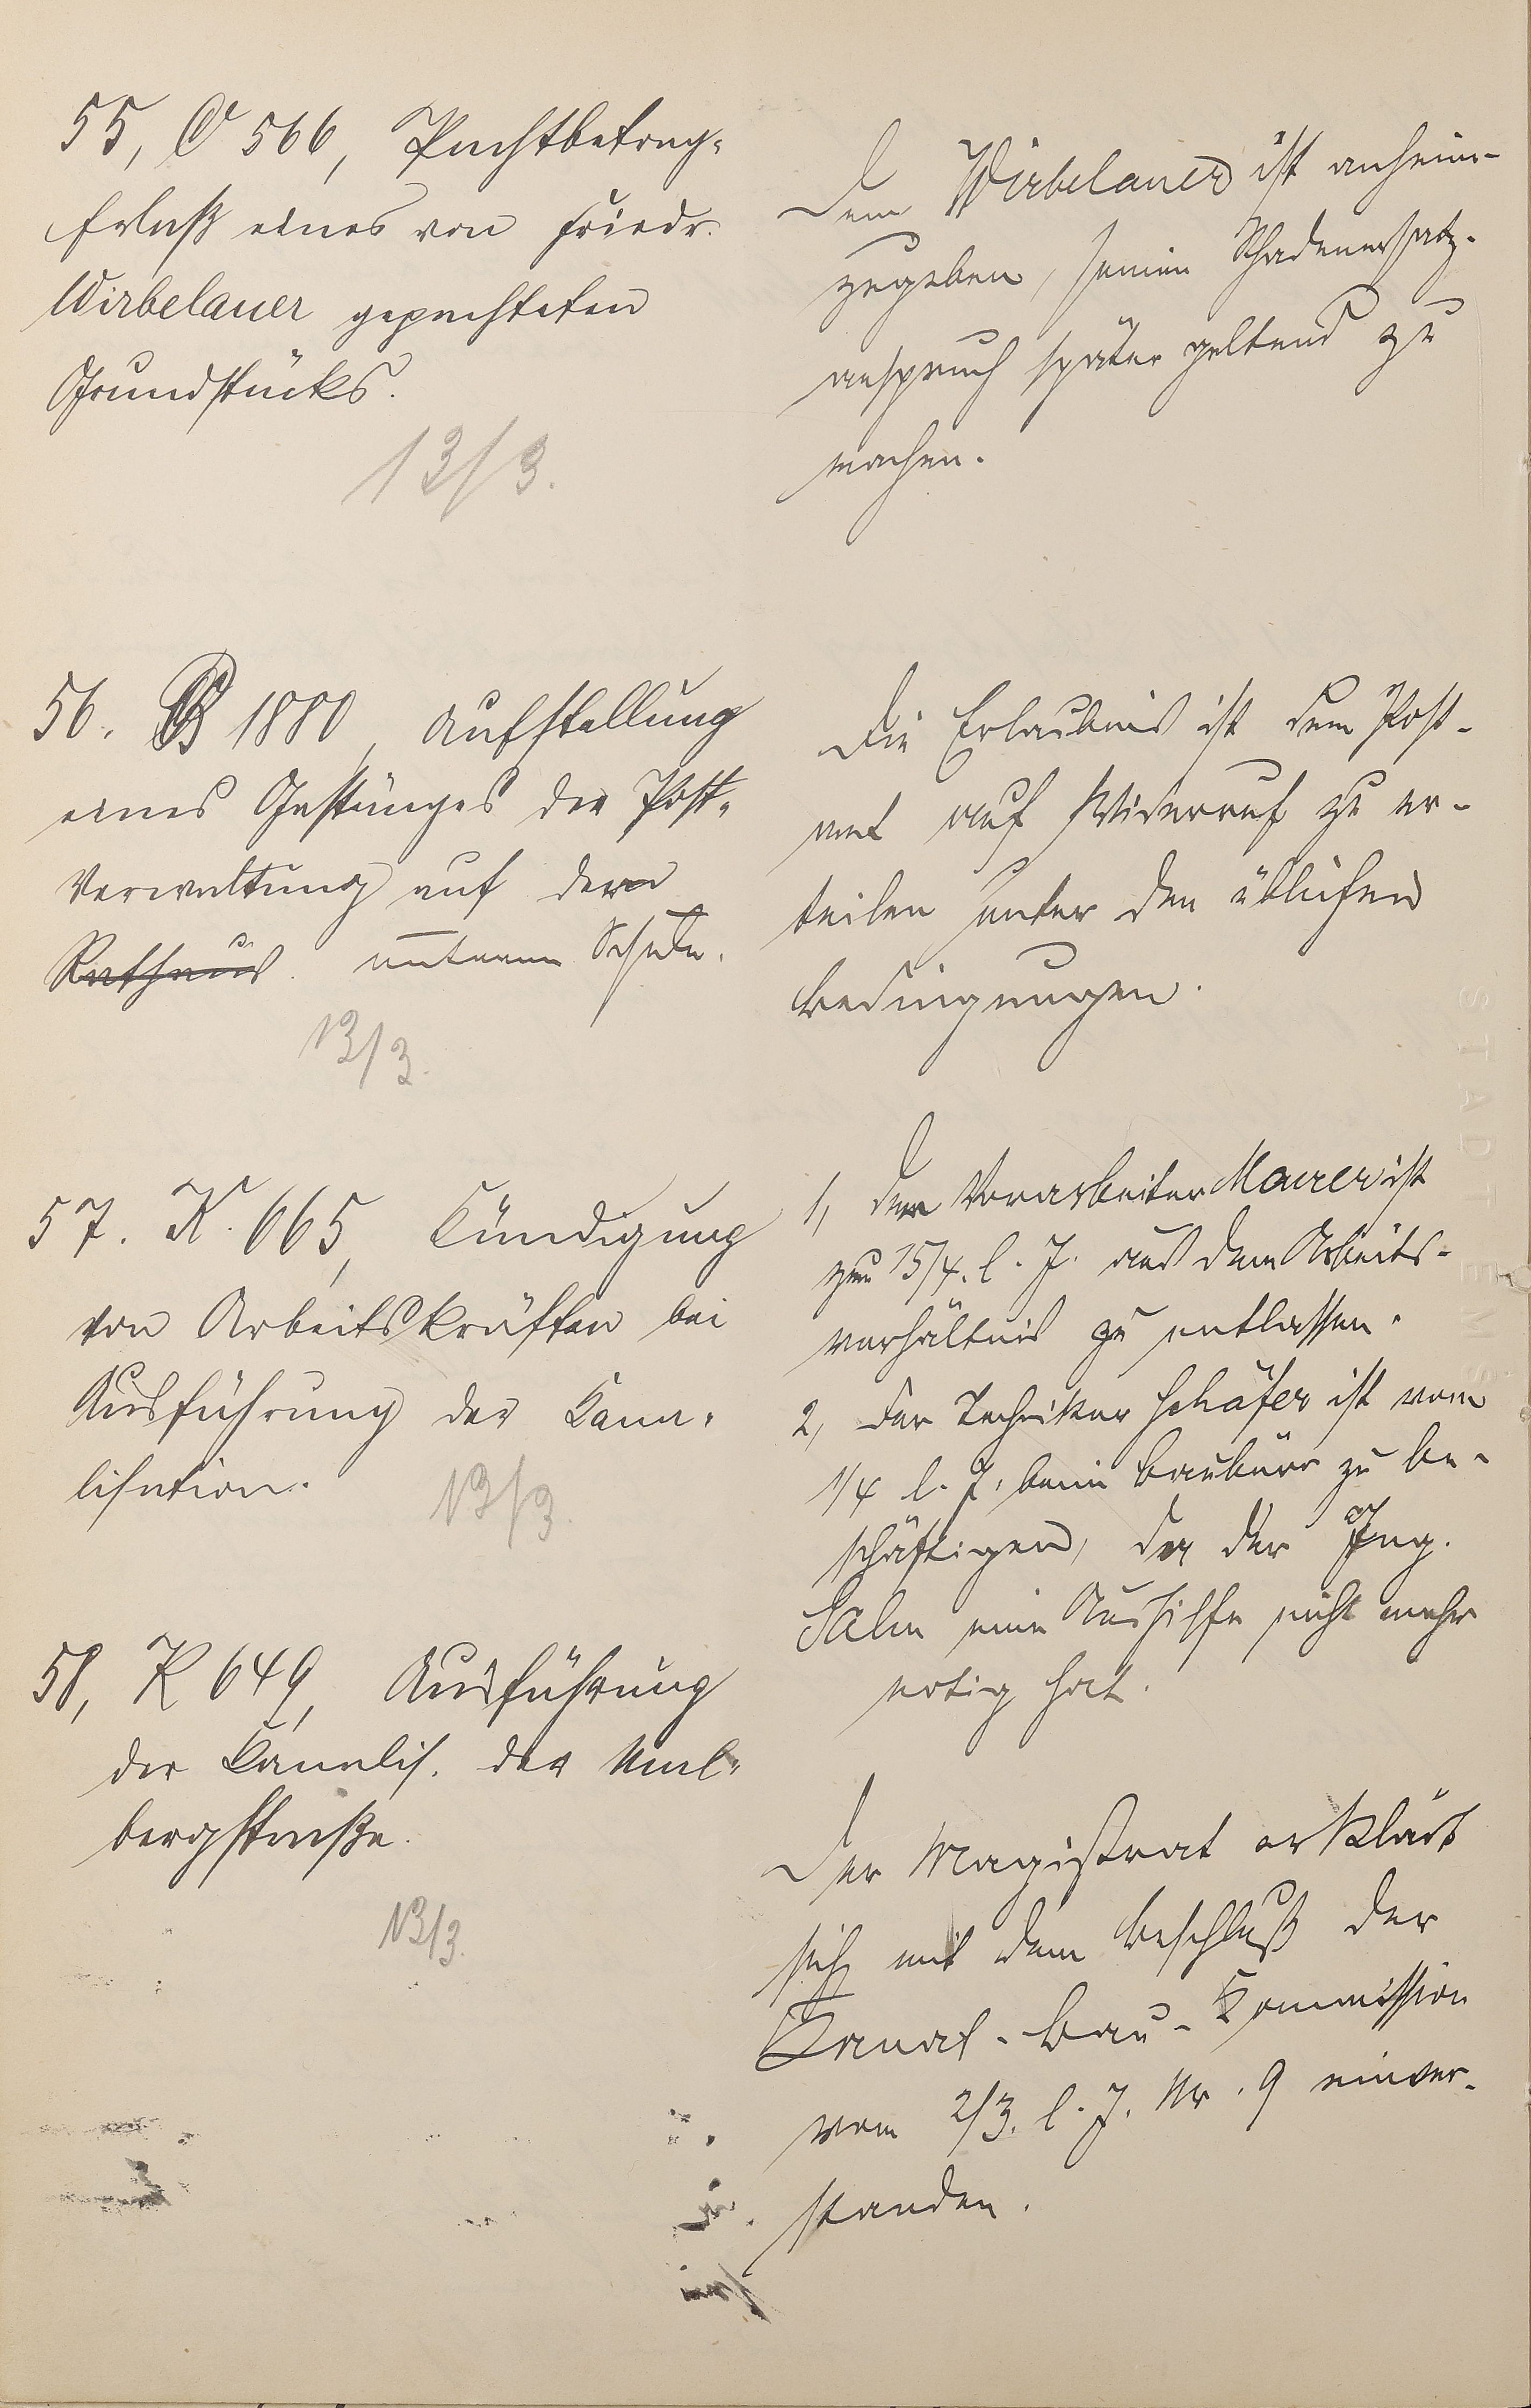 55, O 566, Pachtbetrag-
Erlaß eines von Friedr.
Wirbelauer gepachteten
Grundstücks.
13/3.
Dem Wirbelauer ist anheim-
zugeben, seinen Schadenersatz-
anspruch später geltend zu
machen.
56. B 1880, Aufstellung
eines Gestänges der Post-
Verwaltung auf der
Rathaus. unteren Schule.
13/3.
Die Erlaubnis ist dem Post-
amt auf Widerruf zu er-
teilen unter den üblichen
Bedingungen.
57. K. 665, Kündigung
von Arbeitskräften bei
Ausführung der Kana-
lisation.
13/3.
1, Der Vorarbeiter Maurer ist
zum 15/4. l. J. aus dem Arbeits-
verhältnis zu entlassen.
2, Der Techniker Schäfer ist vom
1/4 l. J. beim Baubüro zu be-
schäftigen, da der Ing.
Salm eine Aushilfe nicht mehr
notig hat.
58, K 649, Ausführung
der Kanalis. der Aml-
bergstraße.
13/3.
Der Magistrat erklärt
sich mit dem Beschluß der
Kanal-Bau-Kommission
vom 2/3. l. J. Nr. 9 einver-
standen.
STADT EMS